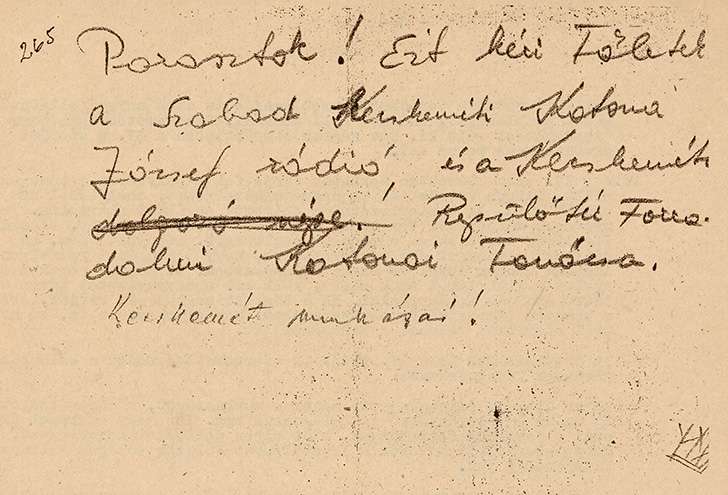 265
Parasztok! Ezt kéri Tőletek
a Szabad Kecskeméti Katona
József rádió, és a Kecskeméti
dolgozó népe. Repülőtéri Forra-
dalmi Katonai Tanácsa.
Kecskemét munkásai!